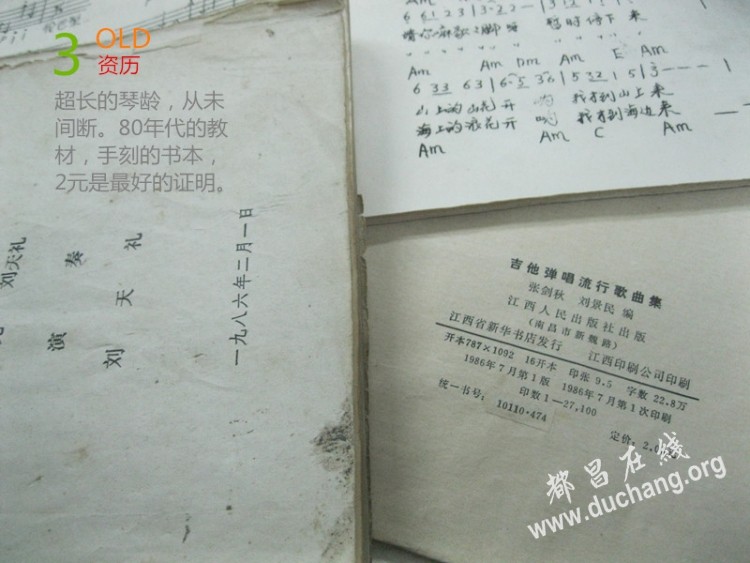 3
OLD
资历
超长的琴龄，从未
间断。80年代的教
材，手刻的书本，
2元是最好的证明。
刘天礼
演奏
刘天礼
一九八六年二月一日
Am
6 33 63
山上的山花开 哟 我才到山上来
海上的浪花开 哟 我才到海边来
Am Am C Am
Am Am Dm Am E Am
暂时停下来
吉他弹唱流行歌曲集
张剑秋 刘景民 编
江西人民出版社出版
（南昌市新魏路）
江西省新华书店发行 江西印刷公司印刷
开本787×1092 16开本 印张 9.5 字数 22.8万
1986年7月第1版 1986年7月第1次印刷
印数1—27,100
统一书号：10110·474 定价：2.0
都昌在线
www.duchang.org